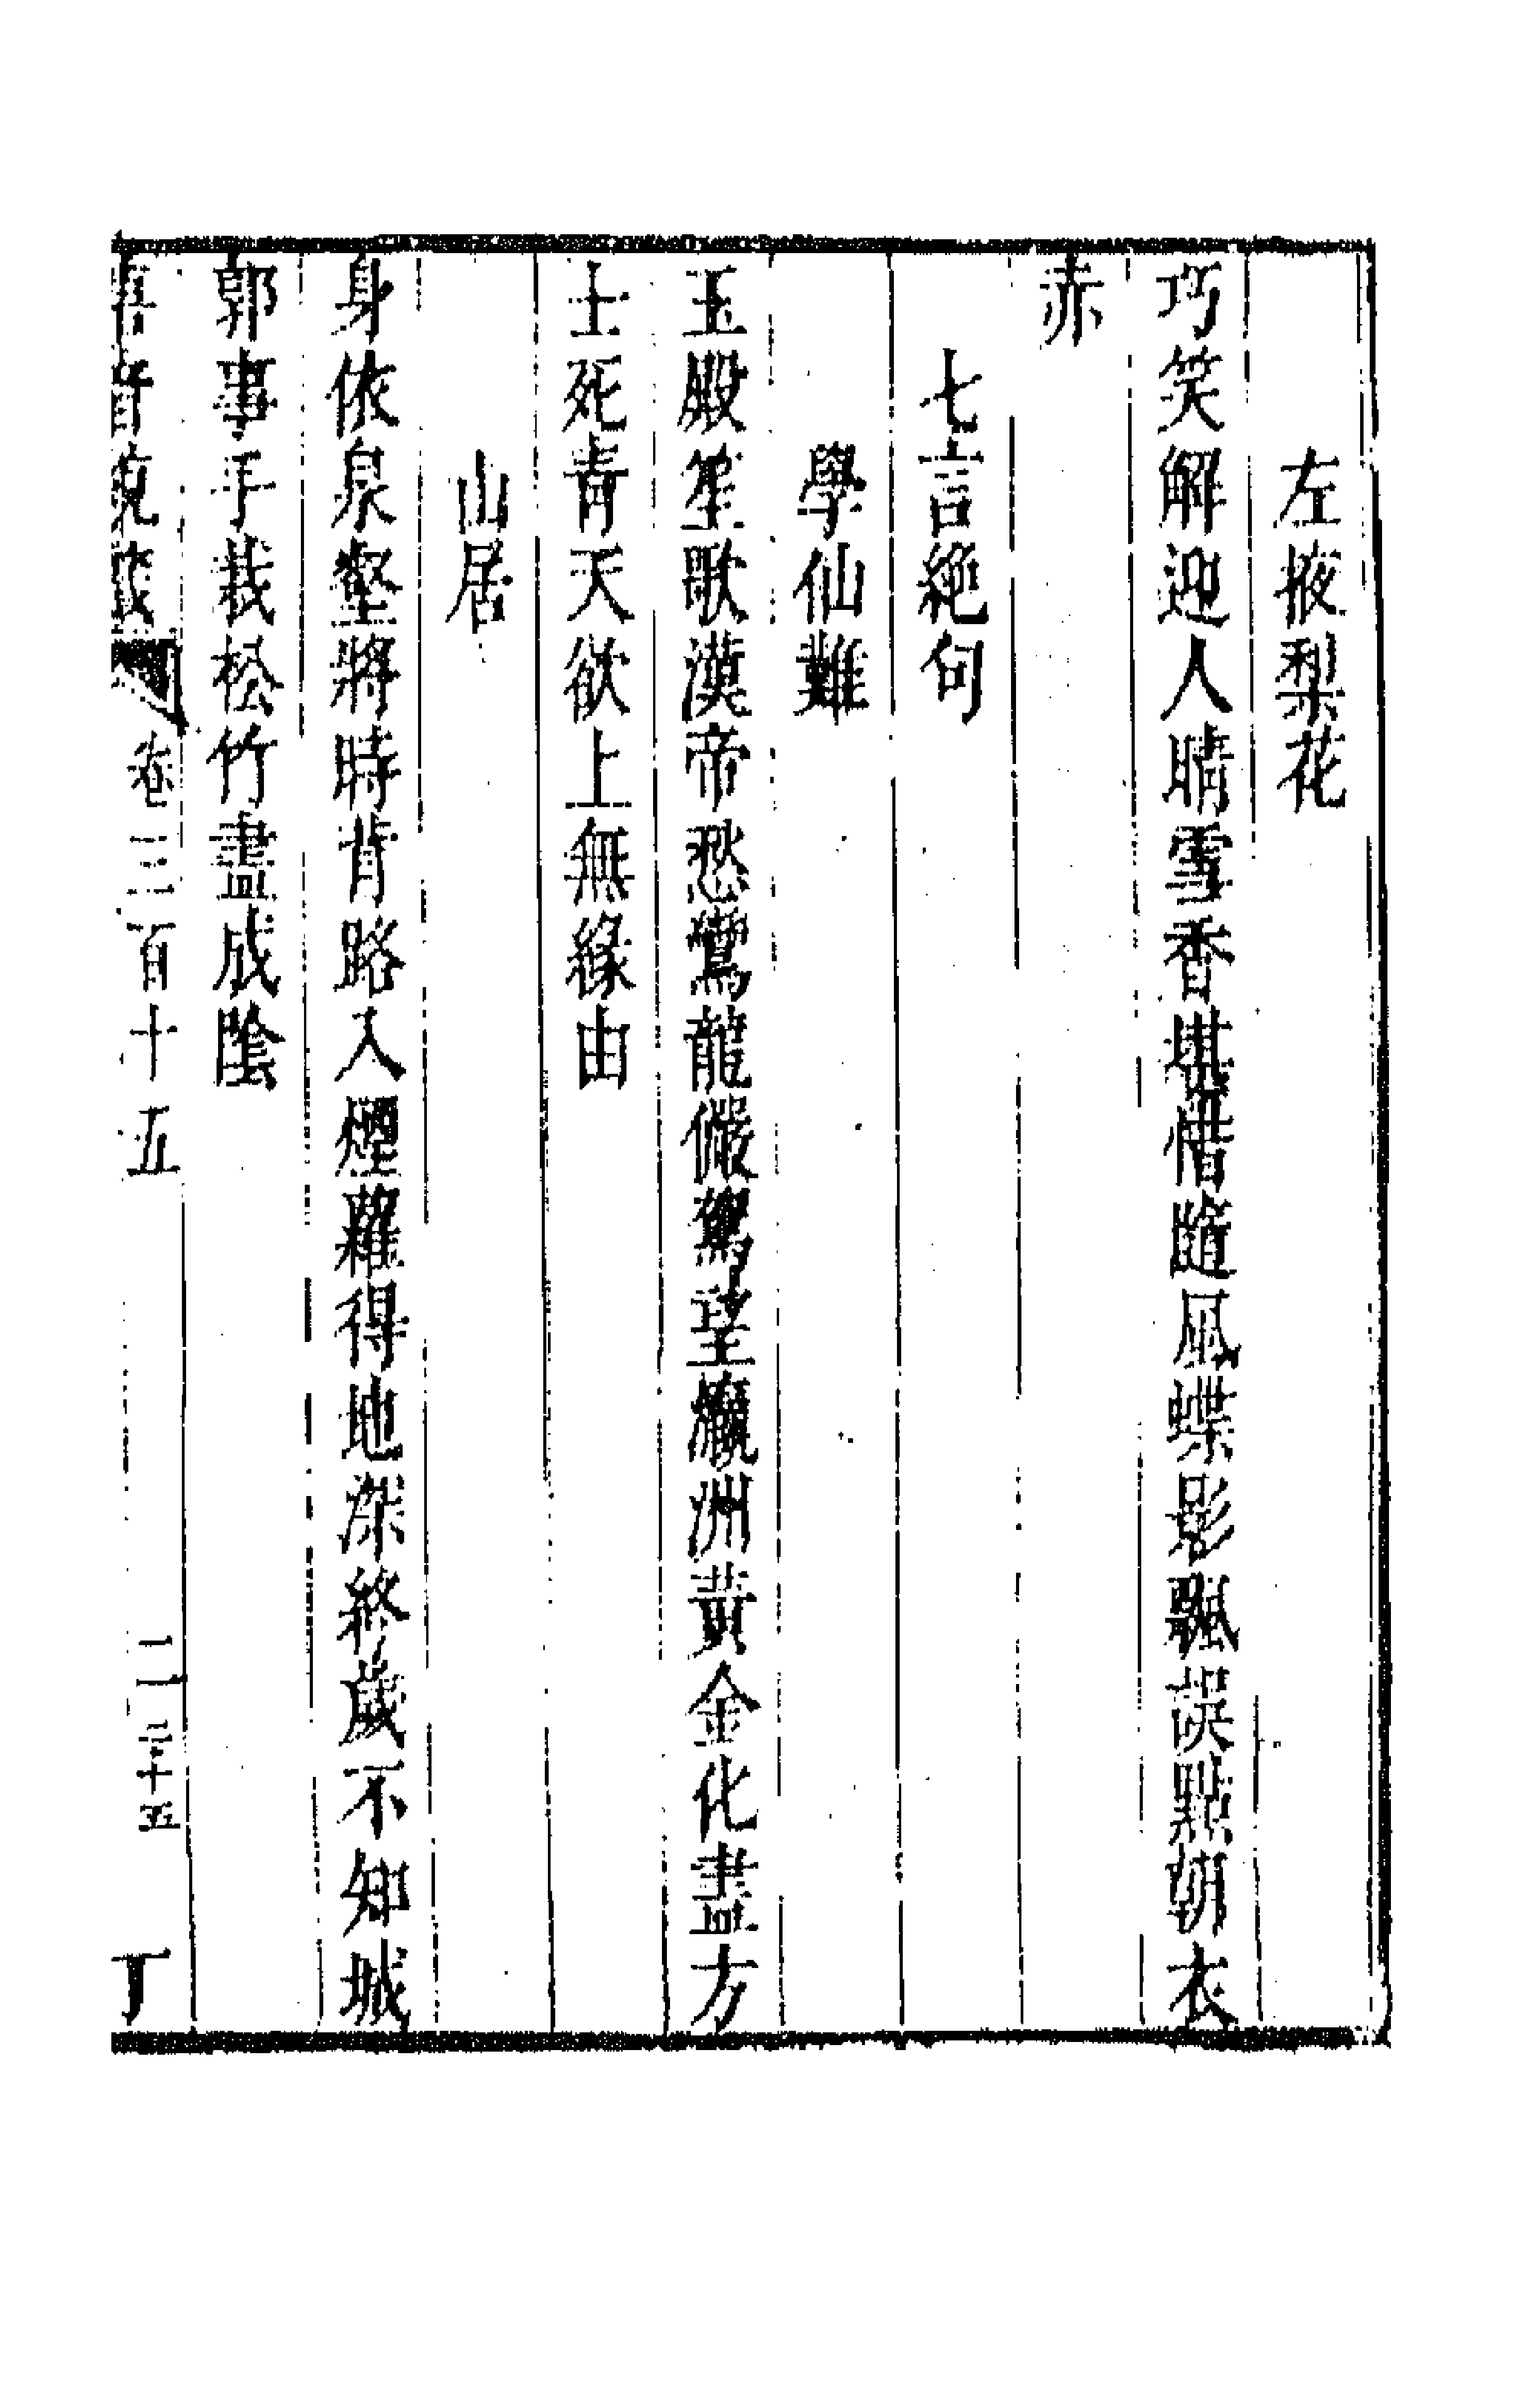 左掖梨花
巧笑解迎人晴雪香堪惜隨風蝶影飄誤點朝衣
赤
七言絕句
學仙難
玉殿笙歌漢帝愁鸞龍儼駕望瀛洲黃金化盡方
士死青天欲上無緣由
山居
身依泉壑將時背路入煙蘿得地深終歲不知城
郭事手栽松竹盡成陰
卷三百十五 三十五 丁